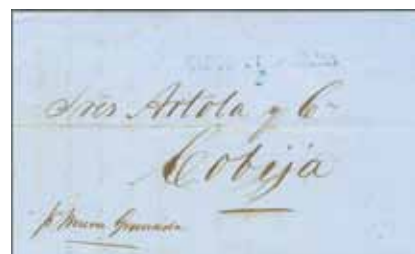 Sres Artola y Cª
Cobija
pr Nueva Granada